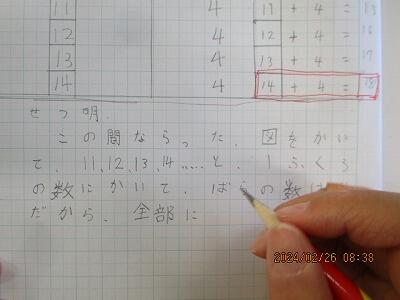 11 4 11 + 4 = 15
12 4 12 + 4 = 16
13 4 13 + 4 = 17
14 4 14 + 4 = 18
せつ明.
この間ならった、図をかい
て、11、12、13、14……と、1ふくろ
の数にかいて、ばらの数は
だから、全部に
2024/02/26 08:38